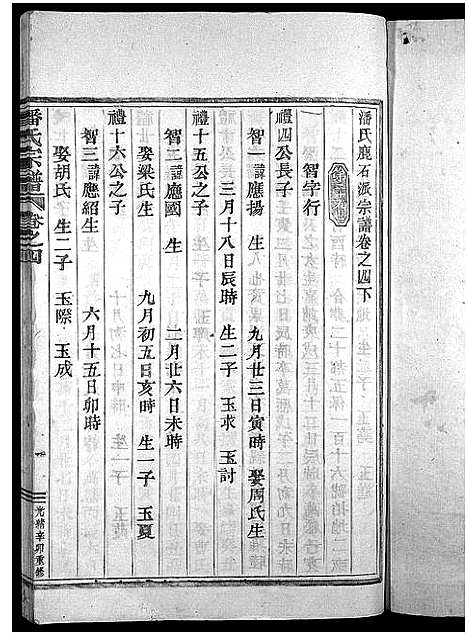 潘氏鹿石派宗譜卷之四下
智字行
禮四公長子
智一諱應揚 生 九月廿三日寅時 娶周氏生
三月十八日辰時 生二子 玉求 玉討
禮十五公之子
智二諱應國 生 二月廿六日未時
娶梁氏生 九月初五日亥時 生一子 玉夏
禮十六公之子
智三諱應紹生 六月十五日卯時
娶胡氏 生二子 玉際 玉成
潘氏宗譜 卷之四
光緒辛卯重修